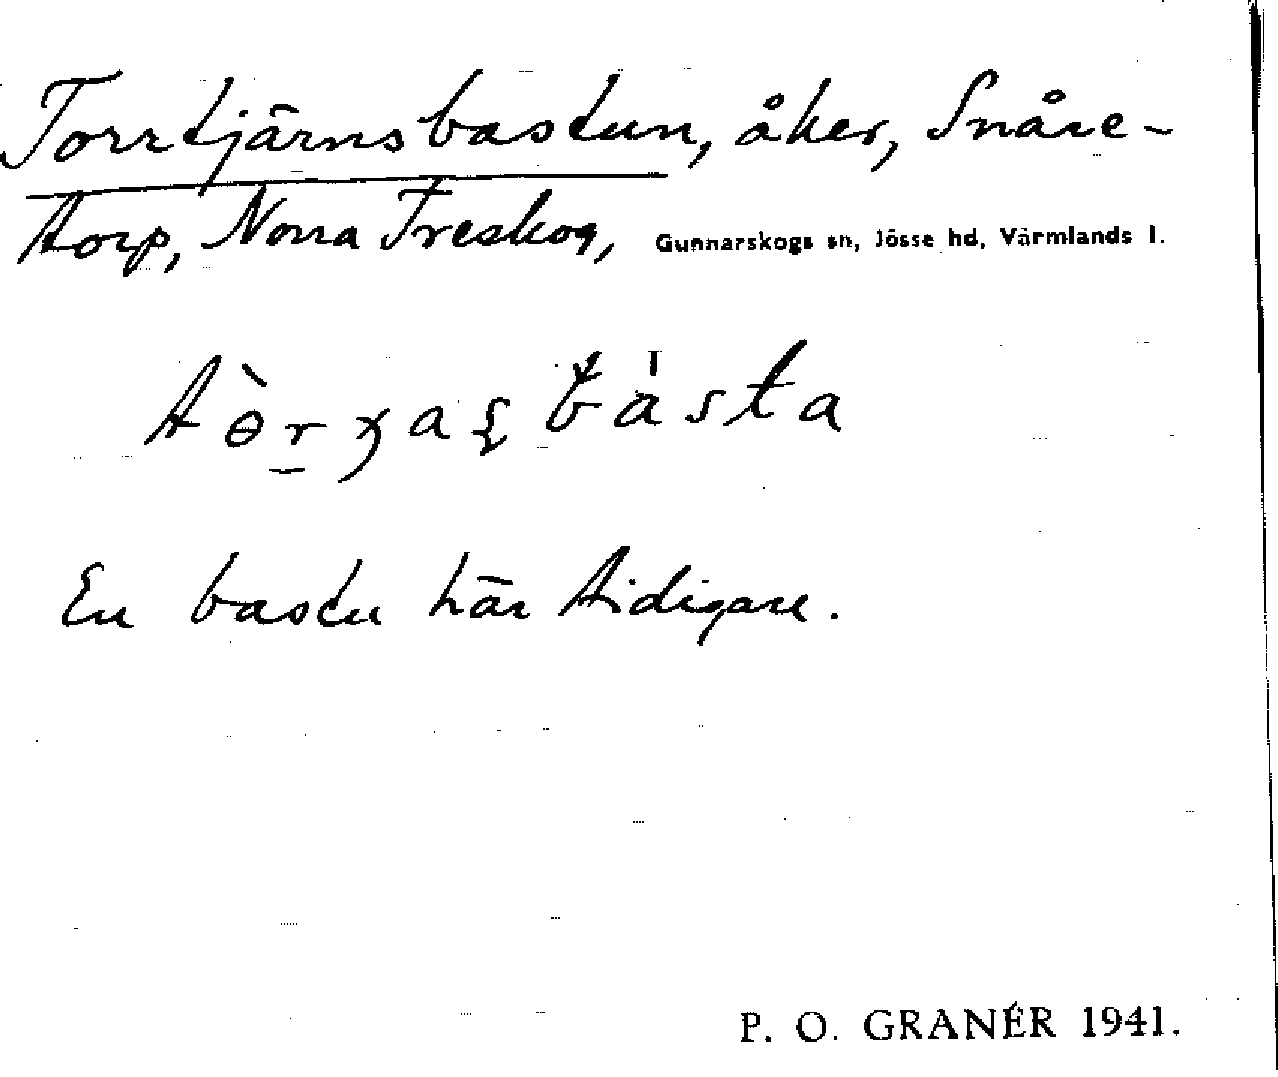 Torrtjärnsbastun, åker, Snåre-
torp, Norra Treskog, Gunnarskogs sn, Jösse hd, Värmlands l.
En bastu här tidigare.
P. O. GRANÉR 1941.